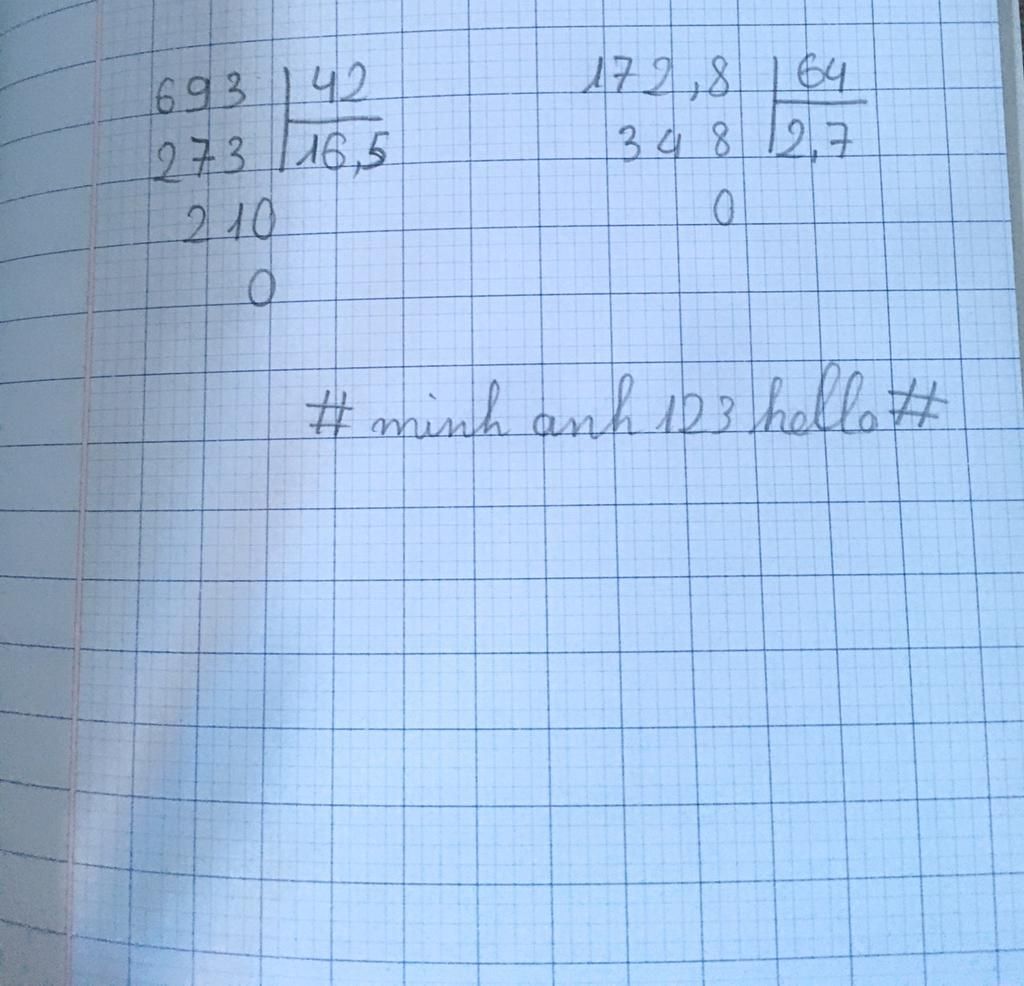 693 42 172,8 64
273 16,5 348 2,7
210 0
0
# minh anh 123 hello #